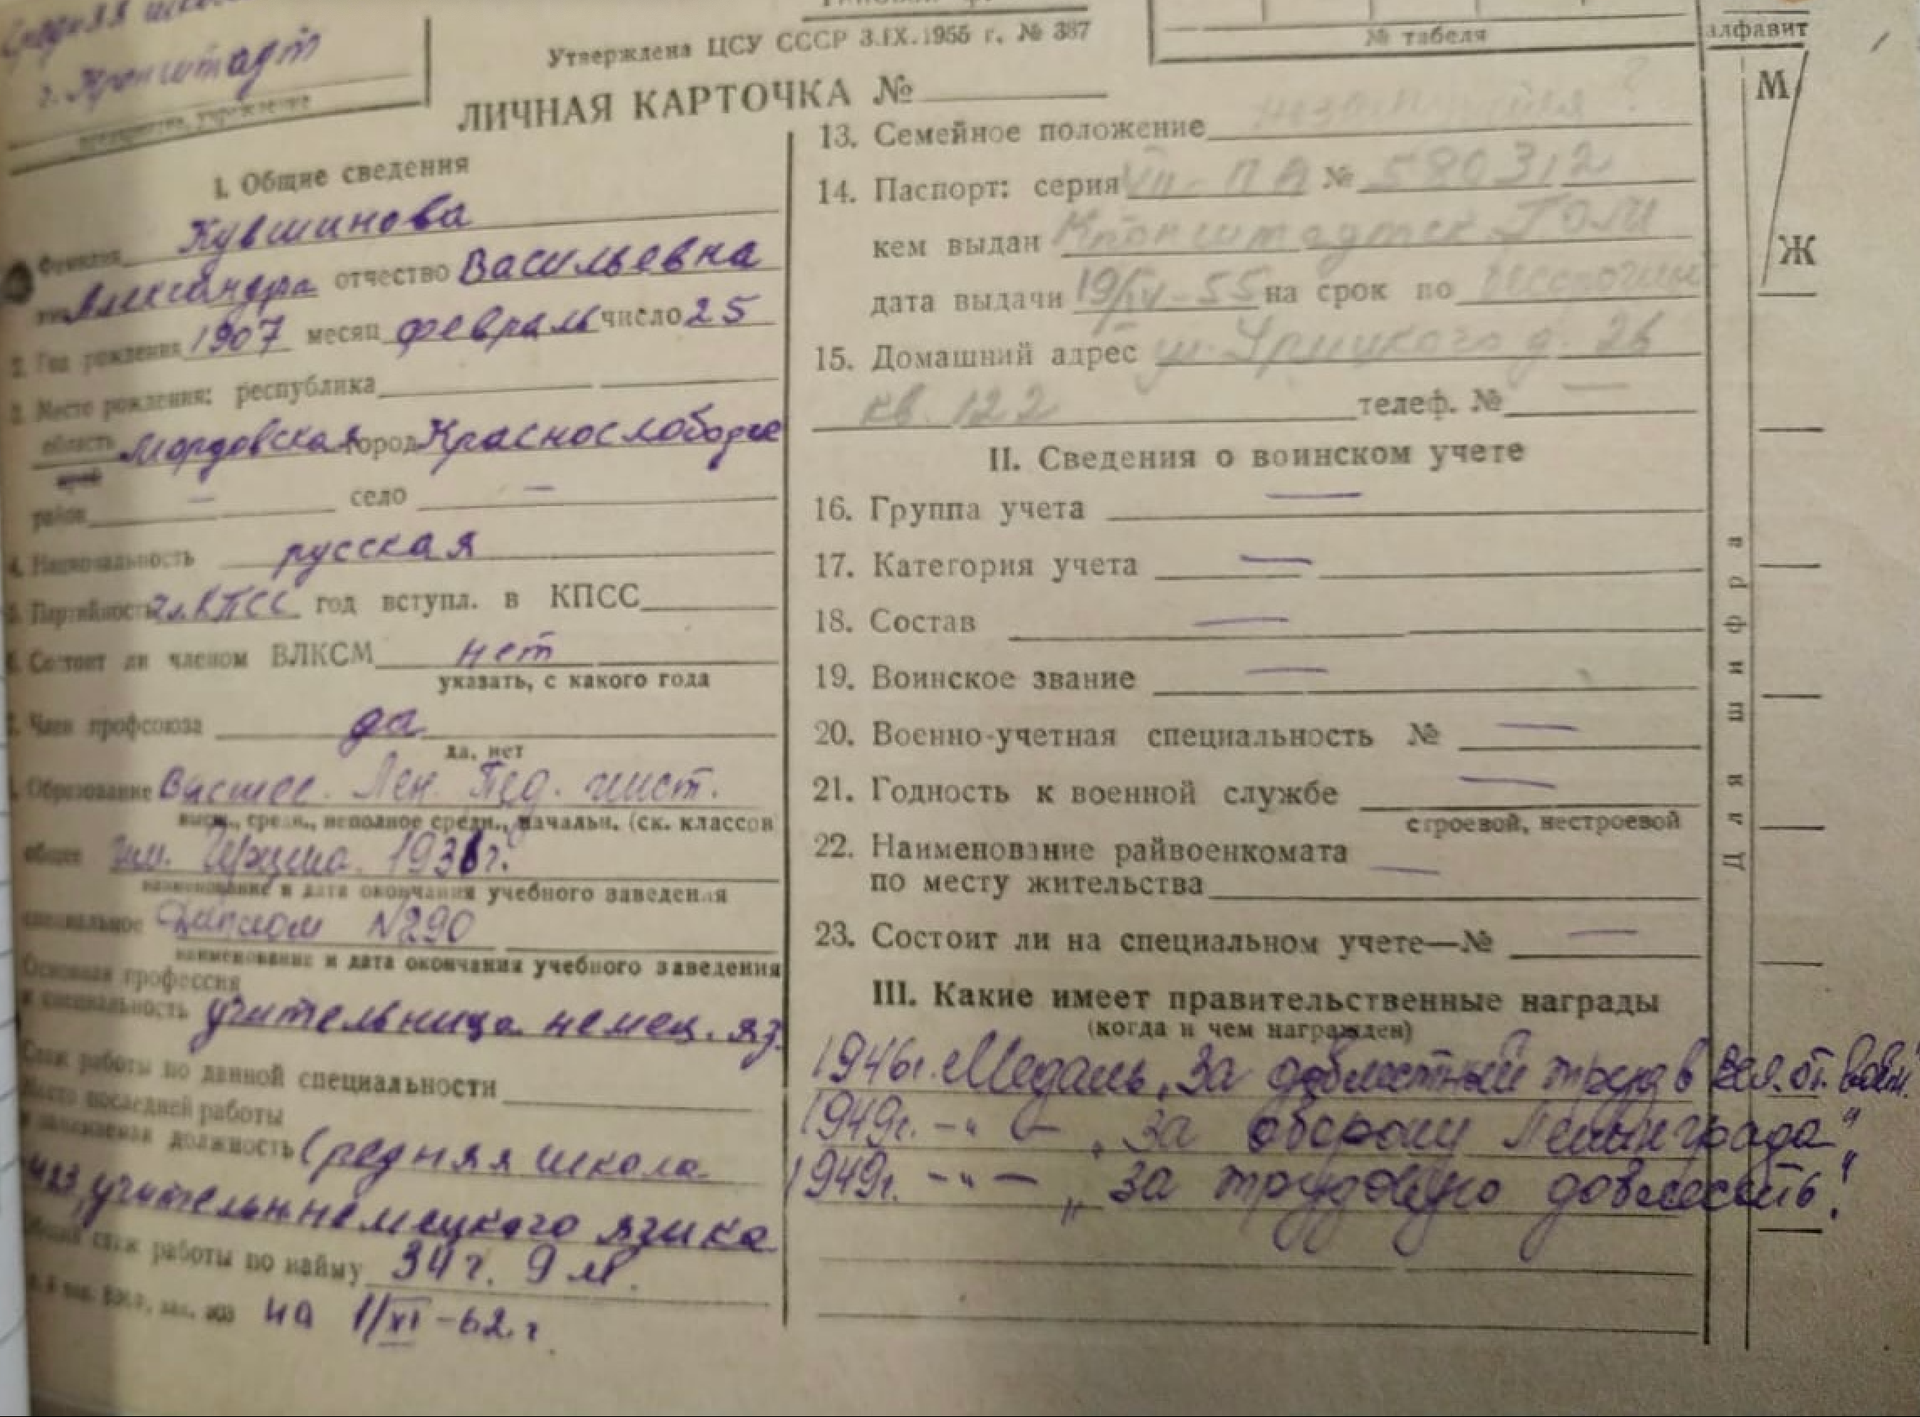 Средняя школа
г. Кронштадт
предприятие, учреждение
Утверждена ЦСУ СССР 3.IX.1955 г. № 387
№ табеля
алфавит
ЛИЧНАЯ КАРТОЧКА №
М
Ж
Для шифра
I. Общие сведения
Фамилия Кувшинова
имя Александра отчество Васильевна
2. Год рождения 1907 месяц февраль число 25
3. Место рождения: республика
область Мордовская город Краснослободск
край
район — село —
4. Национальность русская
5. Партийность чл. КПСС год вступл. в КПСС
6. Состоит ли членом ВЛКСМ нет
указать, с какого года
7. Член профсоюза да
да, нет
Образование Высшее. Лен. Пед. инст.
высш., средн., неполное средн., начальн. (ск. классов
общее им. Герцена. 1936г.
наименование и дата окончания учебного заведения
специальное Диплом №290
наименование и дата окончания учебного заведения
Основная профессия
и специальность учительница немец. яз.
Стаж работы по данной специальности
Место последней работы
и занимаемая должность Средняя школа
423, учительн немецкого языка
Общий стаж работы по найму 34 г. 9 м.
на 1/XI-62 г
13. Семейное положение незамужняя ?
14. Паспорт: серия VII-ПА № 580312
кем выдан Кронштадтск ГОМ
дата выдачи 19/IV-55 на срок по бессрочный
15. Домашний адрес ул. Урицкого д. 26
кв. 122 телеф. № —
II. Сведения о воинском учете
16. Группа учета —
17. Категория учета —
18. Состав —
19. Воинское звание —
20. Военно-учетная специальность № —
21. Годность к военной службе —
строевой, нестроевой
22. Наименование райвоенкомата —
по месту жительства
23. Состоит ли на специальном учете—№ —
III. Какие имеет правительственные награды
(когда и чем награжден)
1946г. Медаль „За доблестный труд в Вел. от. войн."
1949г. -"- „За оборону Ленинграда"
1949г. -"- „За трудовую доблесть".